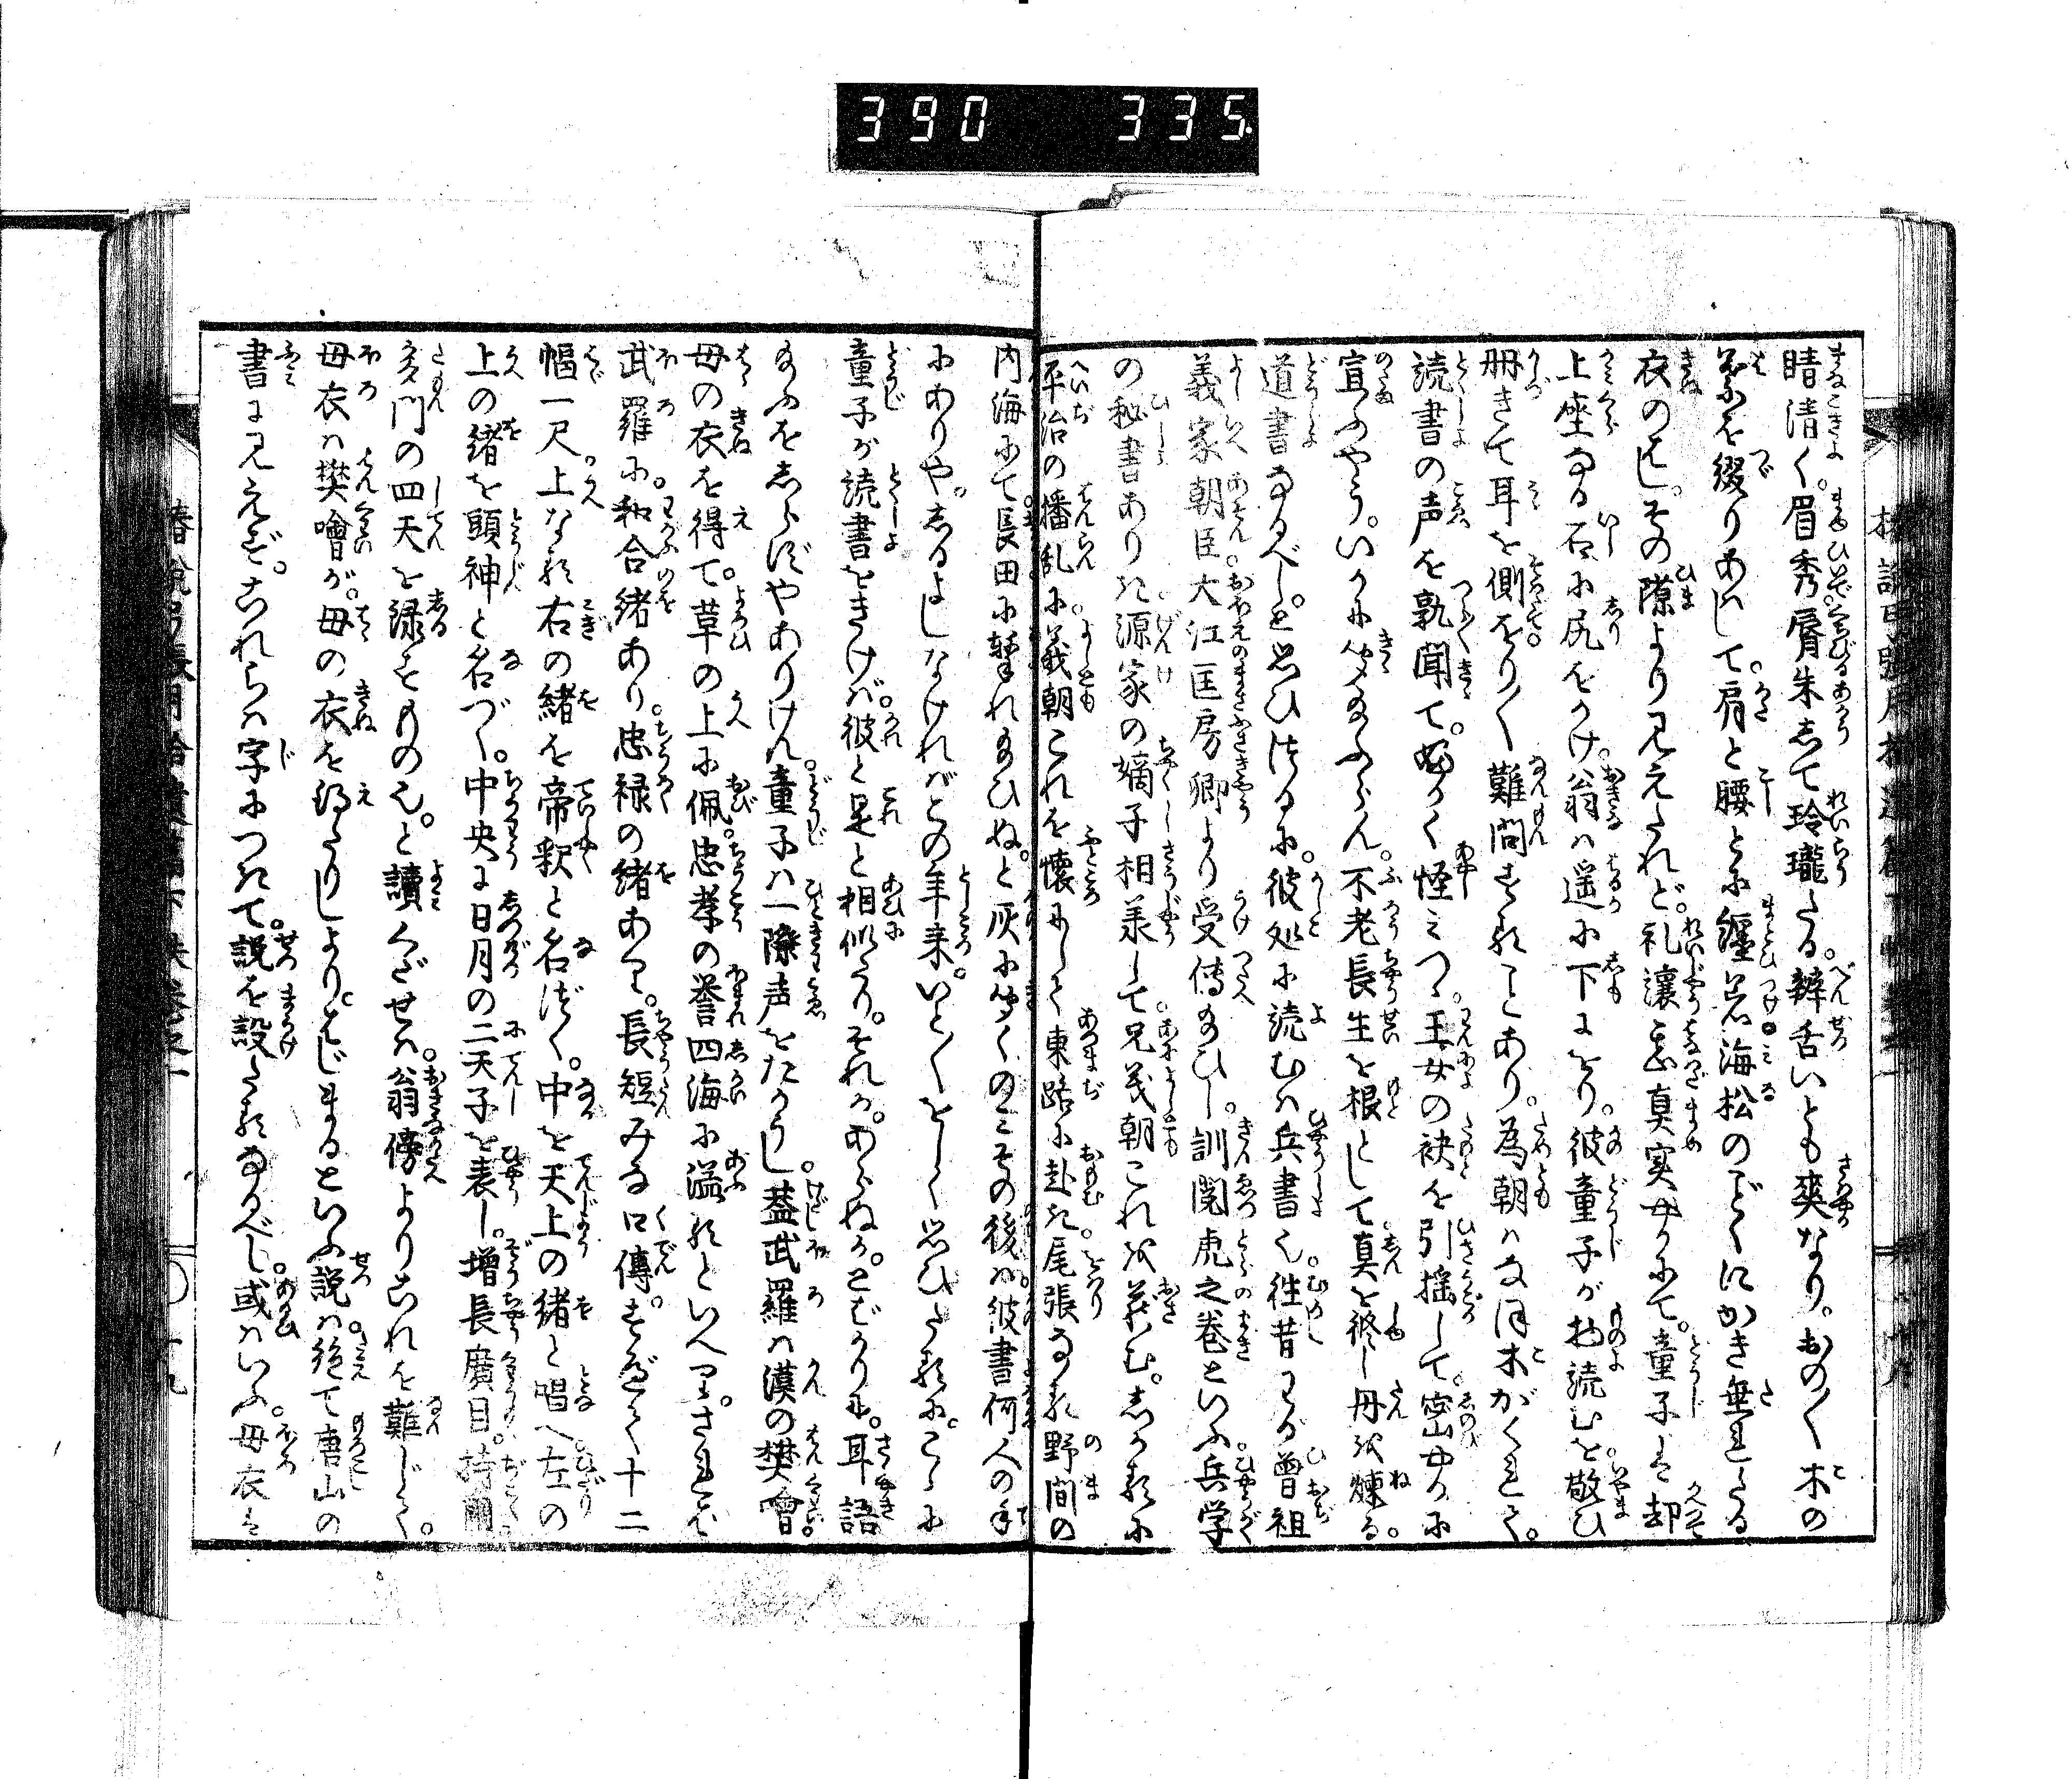 390 335
睛清く。眉秀脣朱して玲瓏たる。辯舌いとも爽なり。おの〳〵木の
葉を綴りあはして。肩と腰とに纏ひ海松のごとくにかき垂れたる
衣のはし。その隙より見えたれど。礼讓真実中かにて。童子は却
上座なる石に尻をかけ。翁は遥に下にをり。彼童子が物読むを敬ひ
冊きて耳を側をり〳〵難問することあり。為朝はなほ木がくれて。
読書の声を孰聞て。ふかく怪みつゝ。王女の袂を引揺して。密やかに
宣ふやう。いかに聞給ふらん。不老長生を根として真を修し丹を煉る。
道書なるべしと思ひつるに。彼処に読むは兵書也。往昔わが曾祖
義家朝臣。大江匡房卿より受傳給ひし。訓閲虎之巻といふ兵学
の秘書あり。是源家の嫡子相羕して。兄義朝これを蔵む。しかるに
平治の播乱に。義朝これを懐にして東路に赴き。尾張なる野間の
内海にて長田に撃れ給ひぬ。と灰に聞くのみその後は彼書何人の手
にありや。しるよしなければとの年来。いと〳〵をしく思ひたるに。こゝに
童子が読書をきけば。彼と是と相似たり。それか。あらぬか。とばかりに。耳語
給ふをしらずやありけん。童子は一際声をたかうし。蓋武羅は漢の樊噲
母の衣を得て。草の上に佩。忠孝の誉四海に溢るといへり。されば
武羅に。和合緒あり。忠禄の緒あり。長短みな口傳。すべて十二
幅一尺上なる右の緒を帝釈と名づく。中を天上の緒と唱へ左の
上の緒を頭神と名づく。中央に日月の二天子を表し。増長廣目。持國
多門の四天を緑するもの也。と讀くだせば。翁傍よりこれを難じて。
母衣は樊噲が。母の衣を得たりしより。はじまるといふ説は絶て唐山の
書に見えず。これらは字につきて。説を設たるなるべし。或はいふ。母衣は